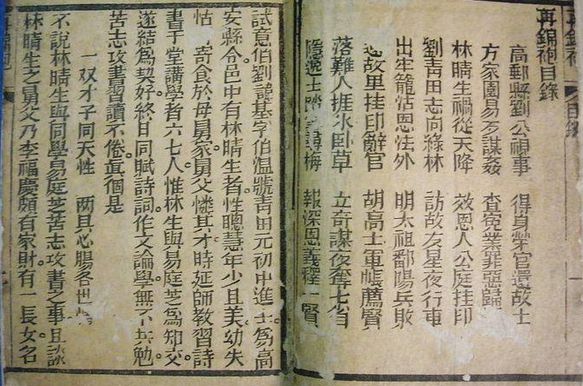 再錦袍 目錄
再錦袍目錄
高郵縣劉公視事 得員榮官還故士
方家園易歹謀姦 查寃業罪惡歸
林晴生禍從天降 效恩人公庭挂印
劉青田志尚綠林 訪故友星夜行車
出牢籠怙恩性外 明太祖鄱陽兵敗
故里挂印辭官 胡高士軍帳薦賢
落難人捱氷卧草 立奇謀夜奪七省
隱逸士 尋梅 報深恩義釋一賢
試意伯劉諱基字伯溫號青田元初中進士為高
安縣令邑中有林晴生者性聰慧年少且美幼失
怙 寄食於母舅家舅父憐其才時延師教習詩
書于堂講學者六七人惟林生與易庭芝為知交
遂結為契好終日同賦詩詞作文論學無不共勉
苦志攻書習讀不倦真個是
一双才子同天性 兩具心腸各世
不說林晴生與同學易庭芝苦志攻書之事且談
林晴生之舅父乃李福慶頗有家財有一長女名
再錦袍